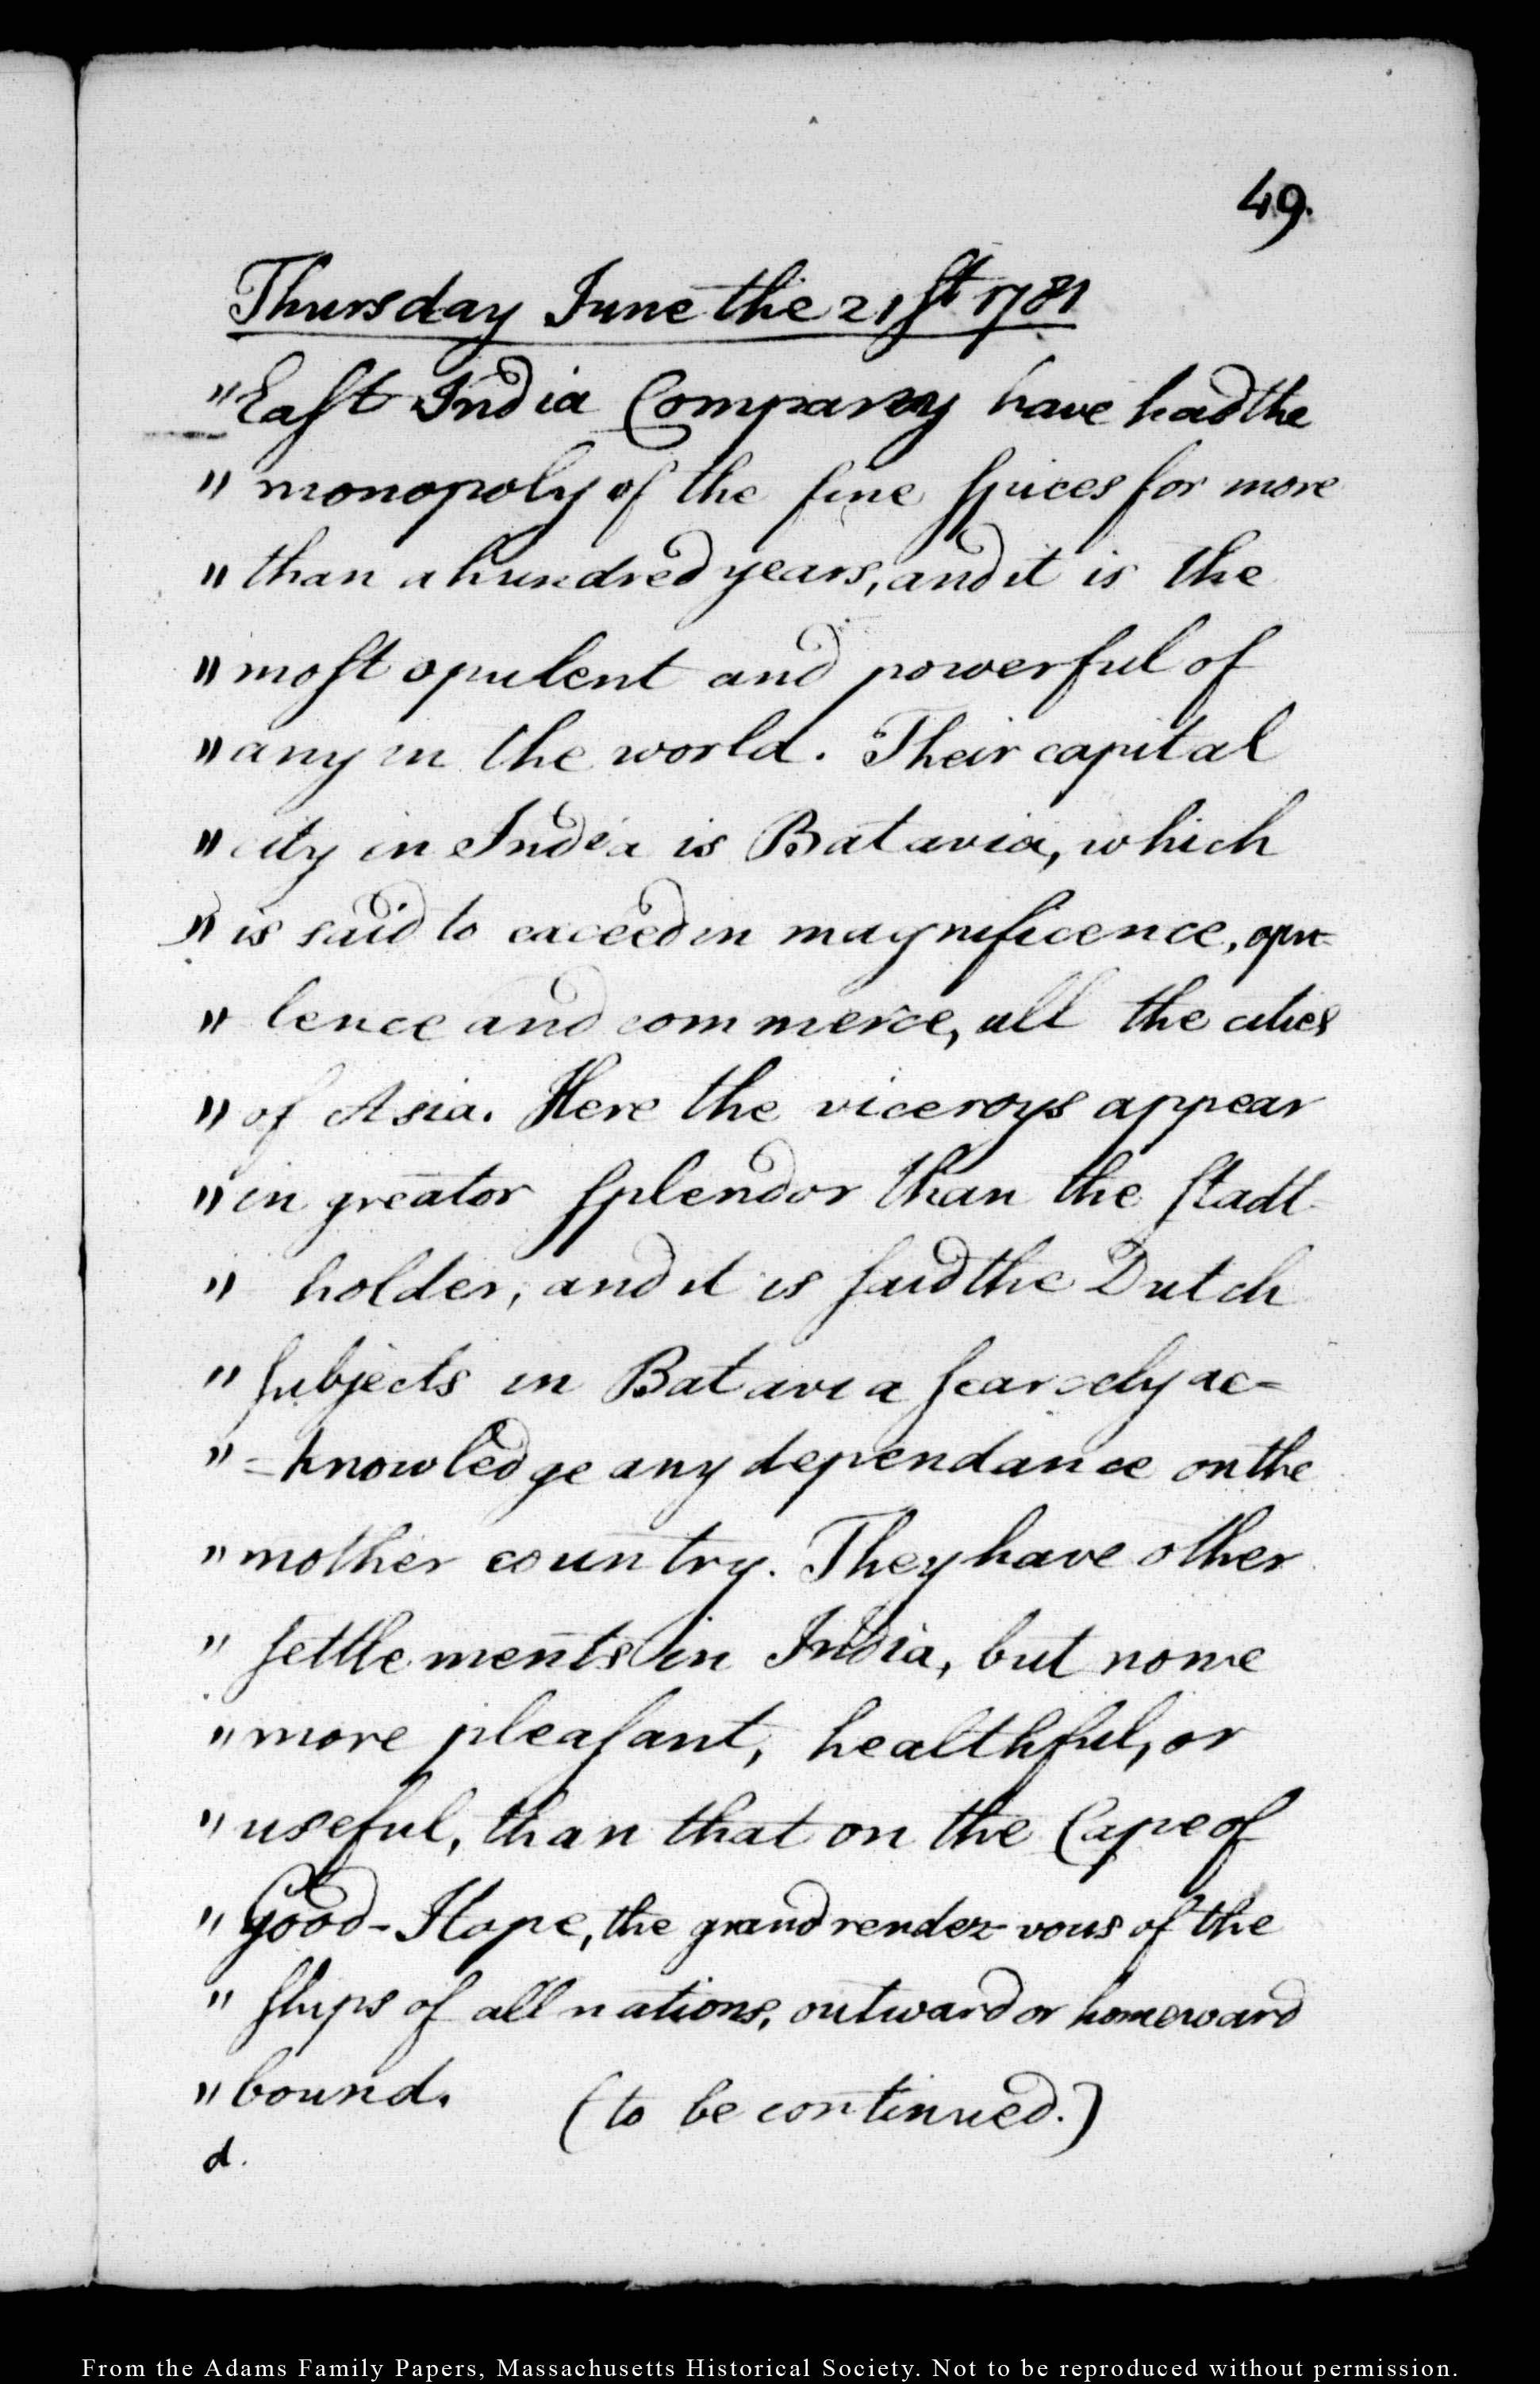 49.
Thursday June the 21st 1781
"East India Company have had the
" monopoly of the fine spices for more
" than a hundred years, and it is the
" most opulent and powerful of
" any in the world. Their capital
" city in India is Batavia, which
" is said to exceed in magnificence, opu=
" lence and commerce, all the cities
" of Asia. Here the viceroys appear
" in greator splendor than the stadt-
" holder, and it is said the Dutch
" subjects in Batavia scarcely ac=
" =knowledge any dependance on the
" mother country. They have other
" settlements in India, but none
" more pleasant, healthful, or
" useful, than that on the Cape of
" Good-Hope, the grand rendez-vous of the
" ships of all nations, outward or homeward
" bound. (to be continued.)
d.
From the Adams Family Papers, Massachusetts Historical Society. Not to be reproduced without permission.